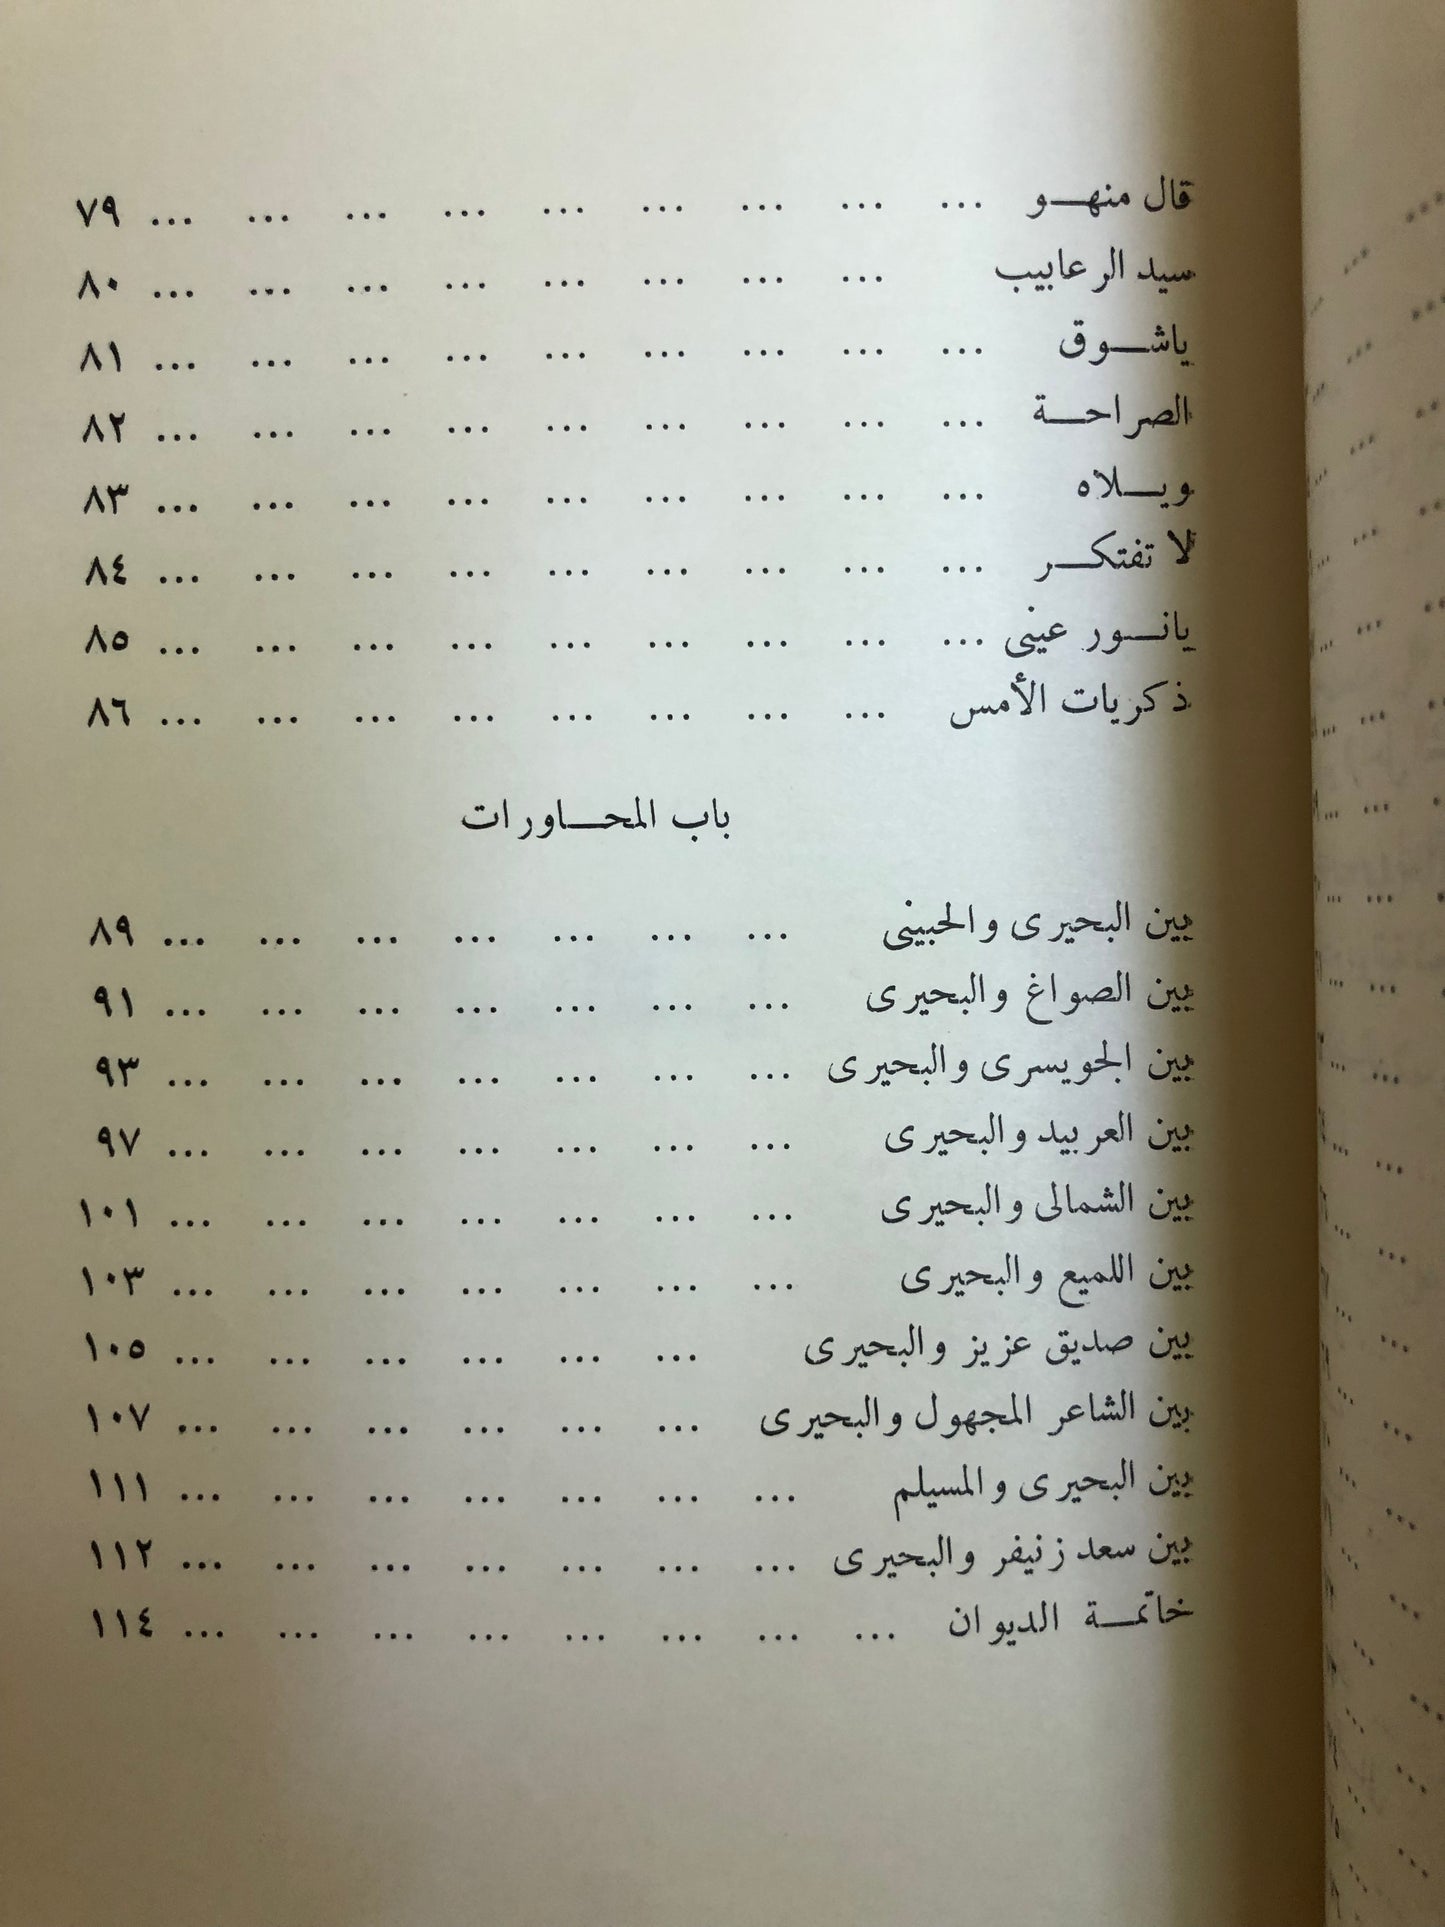 قال منهــو ... ... ... ... ... ... ... ... ... ٧٩
سيد الرعابيب ... ... ... ... ... ... ... ... ٨٠
ياشــوق ... ... ... ... ... ... ... ... ... ٨١
الصراحــة ... ... ... ... ... ... ... ... ... ٨٢
ويــلاه ... ... ... ... ... ... ... ... ... ٨٣
لا تفتكــر ... ... ... ... ... ... ... ... ... ٨٤
يانــور عينى ... ... ... ... ... ... ... ... ... ٨٥
ذكريات الأمس ... ... ... ... ... ... ... ... ٨٦
باب المحــاورات
بين البحيرى والحبينى ... ... ... ... ... ... ... ٨٩
بين الصواغ والبحيرى ... ... ... ... ... ... ... ٩١
بين الجويسرى والبحيرى ... ... ... ... ... ... ... ٩٣
بين العربيد والبحيرى ... ... ... ... ... ... ... ٩٧
بين الشمالى والبحيرى ... ... ... ... ... ... ... ١٠١
بين اللميع والبحيرى ... ... ... ... ... ... ... ١٠٣
بين صديق عزيز والبحيرى ... ... ... ... ... ... ١٠٥
بين الشاعر المجهول والبحيرى ... ... ... ... ... ... ١٠٧
بين البحيرى والمسيلم ... ... ... ... ... ... ... ١١١
بين سعد زنيفر والبحيرى ... ... ... ... ... ... ... ١١٢
خاتمــة الديوان ... ... ... ... ... ... ... ... ١١٤